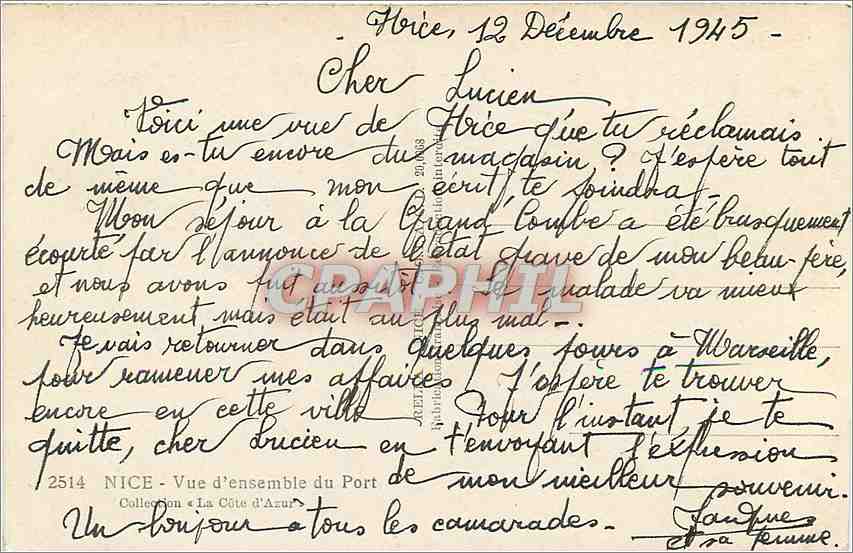 - Nice, 12 Décembre 1945 -
Cher Lucien
Voici une vue de Nice que tu réclamais.
Mais es-tu encore du magasin ? J'espère tout
de même que mon écrit te joindra -
Mon séjour à la Grand Combe a été brusquement
écourté par l'annonce de l'état grave de mon beau-père,
et nous avons aussitôt. Le malade va mieux
heureusement mais était au plus mal -.
Je vais retourner dans quelques jours à Marseille,
pour ramener mes affaires. J'espère te trouver
encore en cette ville. Pour l'instant, je te
quitte, cher Lucien en t'envoyant l'expression
de mon meilleur souvenir.
2514 NICE - Vue d'ensemble du Port
Collection « La Côte d'Azur »
Un bonjour a tous les camarades -
Jacques
et sa femme.
NICE
Fabrication
interdite
CPRAPHIL